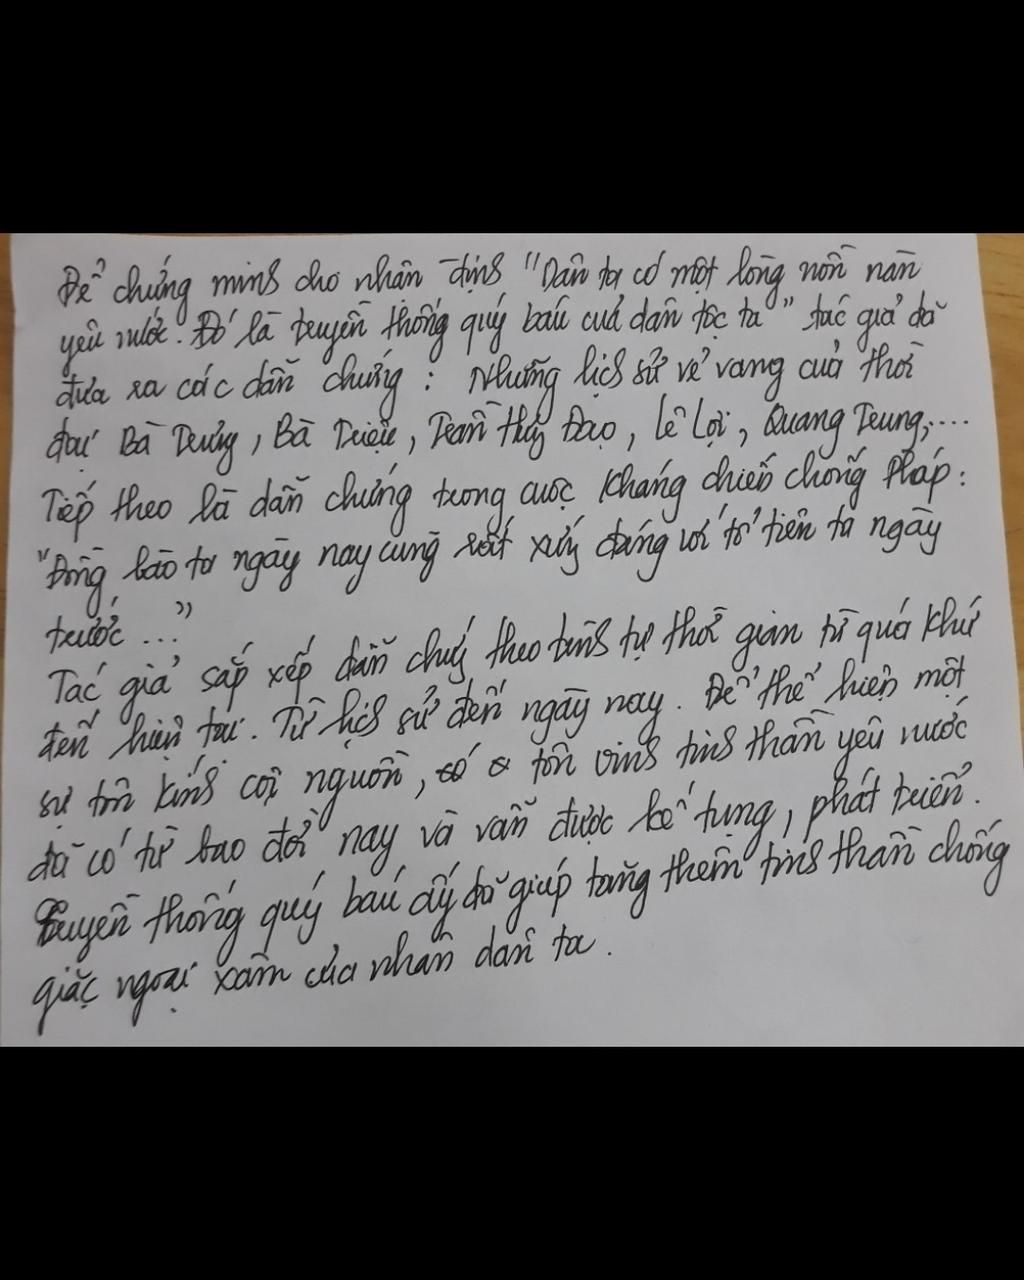 Để chứng minh cho nhận định "Dân ta có một lòng nồn nàn
yêu nước. Đó là truyền thống quý báu của dân tộc ta" tác giả đã
đưa ra các dẫn chứng : Những lịch sử vẻ vang của thời
đại Bà Trưng, Bà Triệu, Trần Hưng Đạo, Lê Lợi, Quang Trung,....
Tiếp theo là dẫn chứng trong cuộc kháng chiến chống Pháp :
"Đồng bào ta ngày nay cũng rất xứng đáng với tổ tiên ta ngày
trước ..."
Tác giả sắp xếp dẫn chứng theo trình tự thời gian từ quá khứ
đến hiện tại. Từ lịch sử đến ngày nay. Để thể hiện một
sự tôn kính cội nguồn, tôn vinh tinh thần yêu nước
đã có từ bao đời nay và vẫn được kế tụng, phát triển.
Truyền thống quý báu ấy đã giúp tăng thêm tinh thần chống
giặc ngoại xâm của nhân dân ta.